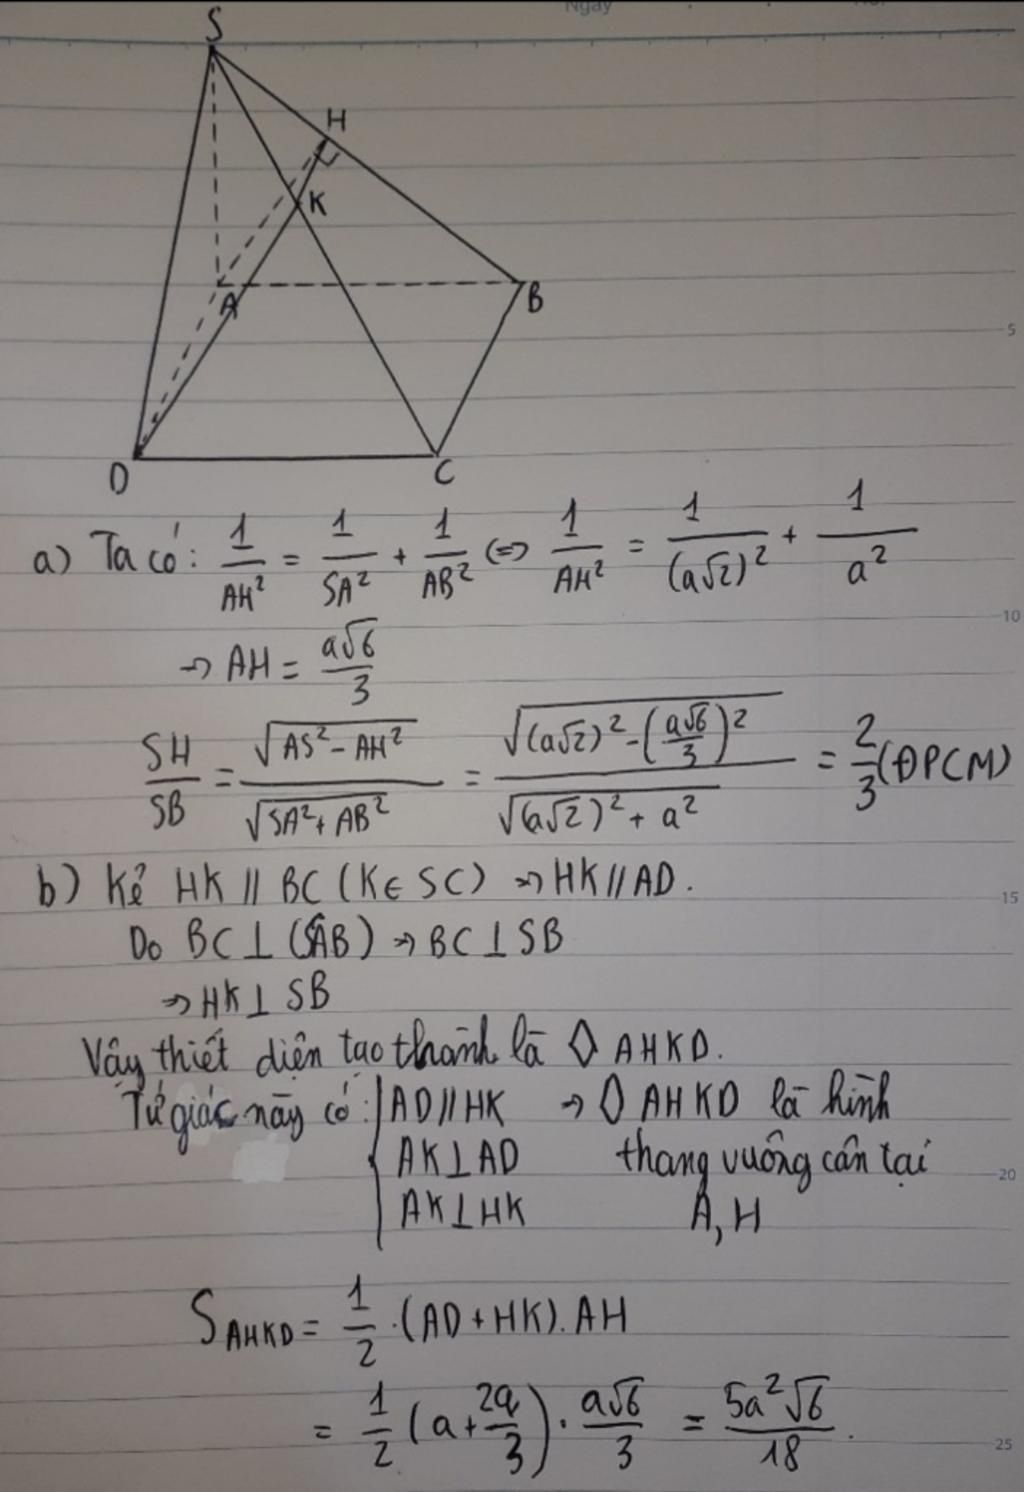 Ngày
S
H
K
A
B
5
D
C
a) Ta có: 1/AH² = 1/SA² + 1/AB² (=) 1/AH² = 1/(a√2)² + 1/a²
10
→ AH = a√6/3
SH/SB = √(AS² - AH²)/√(SA² + AB²) = √((a√2)² - (a√6/3)²)/√((a√2)² + a²) = 2/3 (ĐPCM)
b) Kẻ HK // BC (K∈ SC) → HK // AD.
15
Do BC ⊥ (SAB) → BC ⊥ SB
→ HK ⊥ SB
Vậy thiết diện tạo thành là ◊ AHKD.
Tứ giác này có: { AD // HK → ◊ AHKD là hình
AK ⊥ AD thang vuông cân tại
20
AK ⊥ HK A, H
S AHKD = 1/2 . (AD + HK). AH
= 1/2 (a + 2a/3) . a√6/3 = 5a²√6/18 .
25